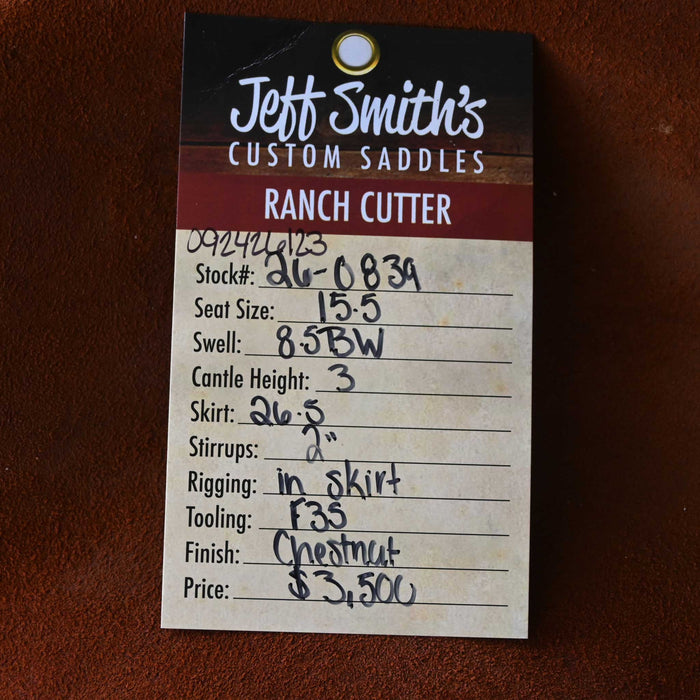 Jeff Smith's
CUSTOM SADDLES
RANCH CUTTER
092426123
Stock#: 26-0839
Seat Size: 15.5
Swell: 8.5BW
Cantle Height: 3
Skirt: 26.5
Stirrups: 2"
Rigging: in skirt
Tooling: F35
Finish: Chestnut
Price: $3,500